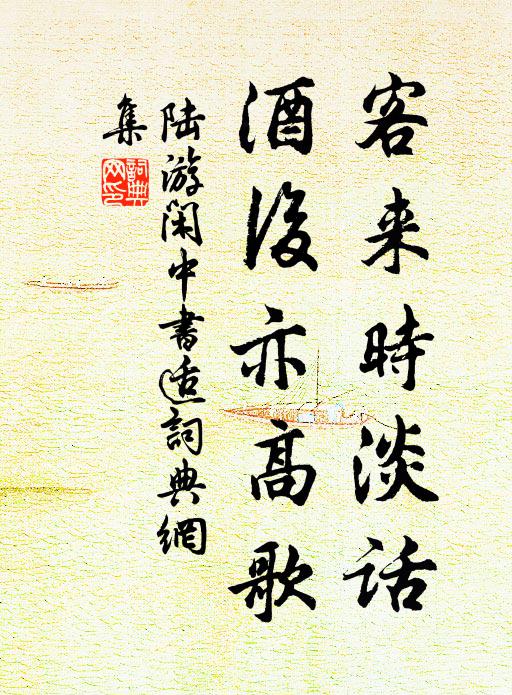 客来時淡話
酒後亦高歌
陆游闲中書适詞典網
集
詞典網印